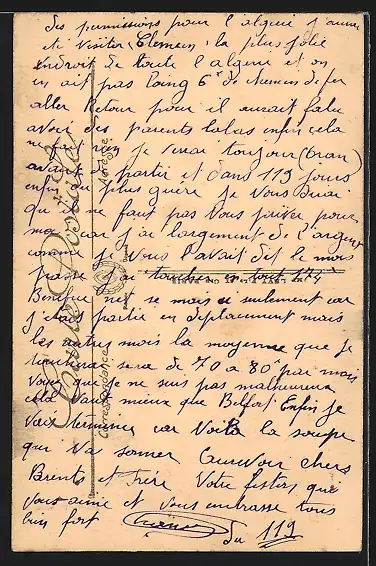 des permissions pour l algerie j aurai
ete visiter (Clemcen) la plus jolie
endroit de toute l algerie et on
en ait pas loing 6 de chemin de fer
aller Retour pour il aurait falu
avoir des parents labas enfin cela
ne fait rien je verai toujour (Oran)
avant de partir et dans 119 jours
enfin plus guère je vous dirai
qu il ne faut pas vous priver pour
moi car j ai largement de l argent
comme je vous l avait dit le mois
passé j ai toucher en tout 174
Benefice net se mois ci seulement car
j etais partie en deplacement mais
les autres mois la moyenne que je
toucherai sera de 70 a 80 par mois
Voyez que je ne suis pas malheureux
vaux mieux que Belfort Enfin je
vais terminer car voila la soupe
qui va sonner Aurevoir chers
Parents et frère Votre fiston qui
vous aime et vous embrasse tous
bien fort
du 119
Carte Postale
Correspondance
Adresse